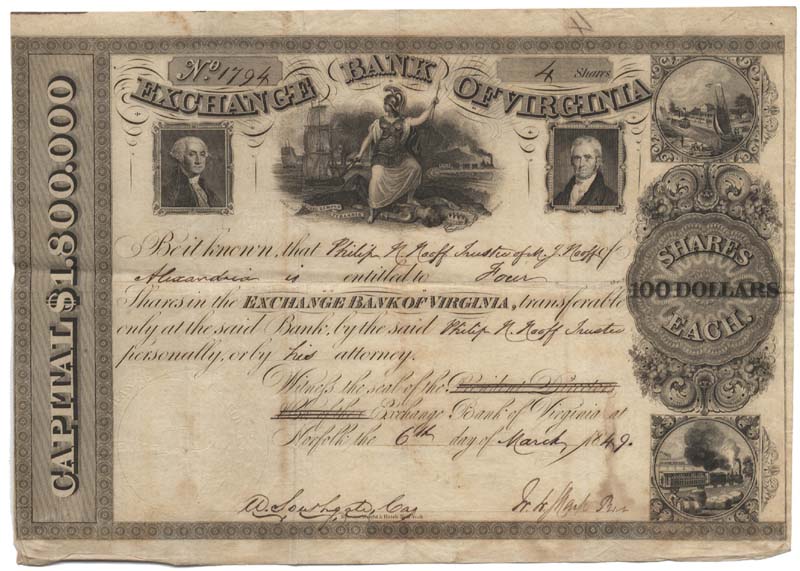 No. 1794
4 Shares
EXCHANGE BANK OF VIRGINIA
CAPITAL $1.800.000
Be it known, that Philip H. Hooff Trustee of M. J. Hooff of
Alexandria is entitled to Four
Shares in the EXCHANGE BANK OF VIRGINIA, transferable
only at the said Bank, by the said Philip H. Hooff Trustee
personally, or by his attorney.
Witness the seal of the President Directors
Exchange Bank of Virginia at
Norfolk the 6th day of March, 1849.
SHARES
100 DOLLARS
EACH.
Southgate, Cas